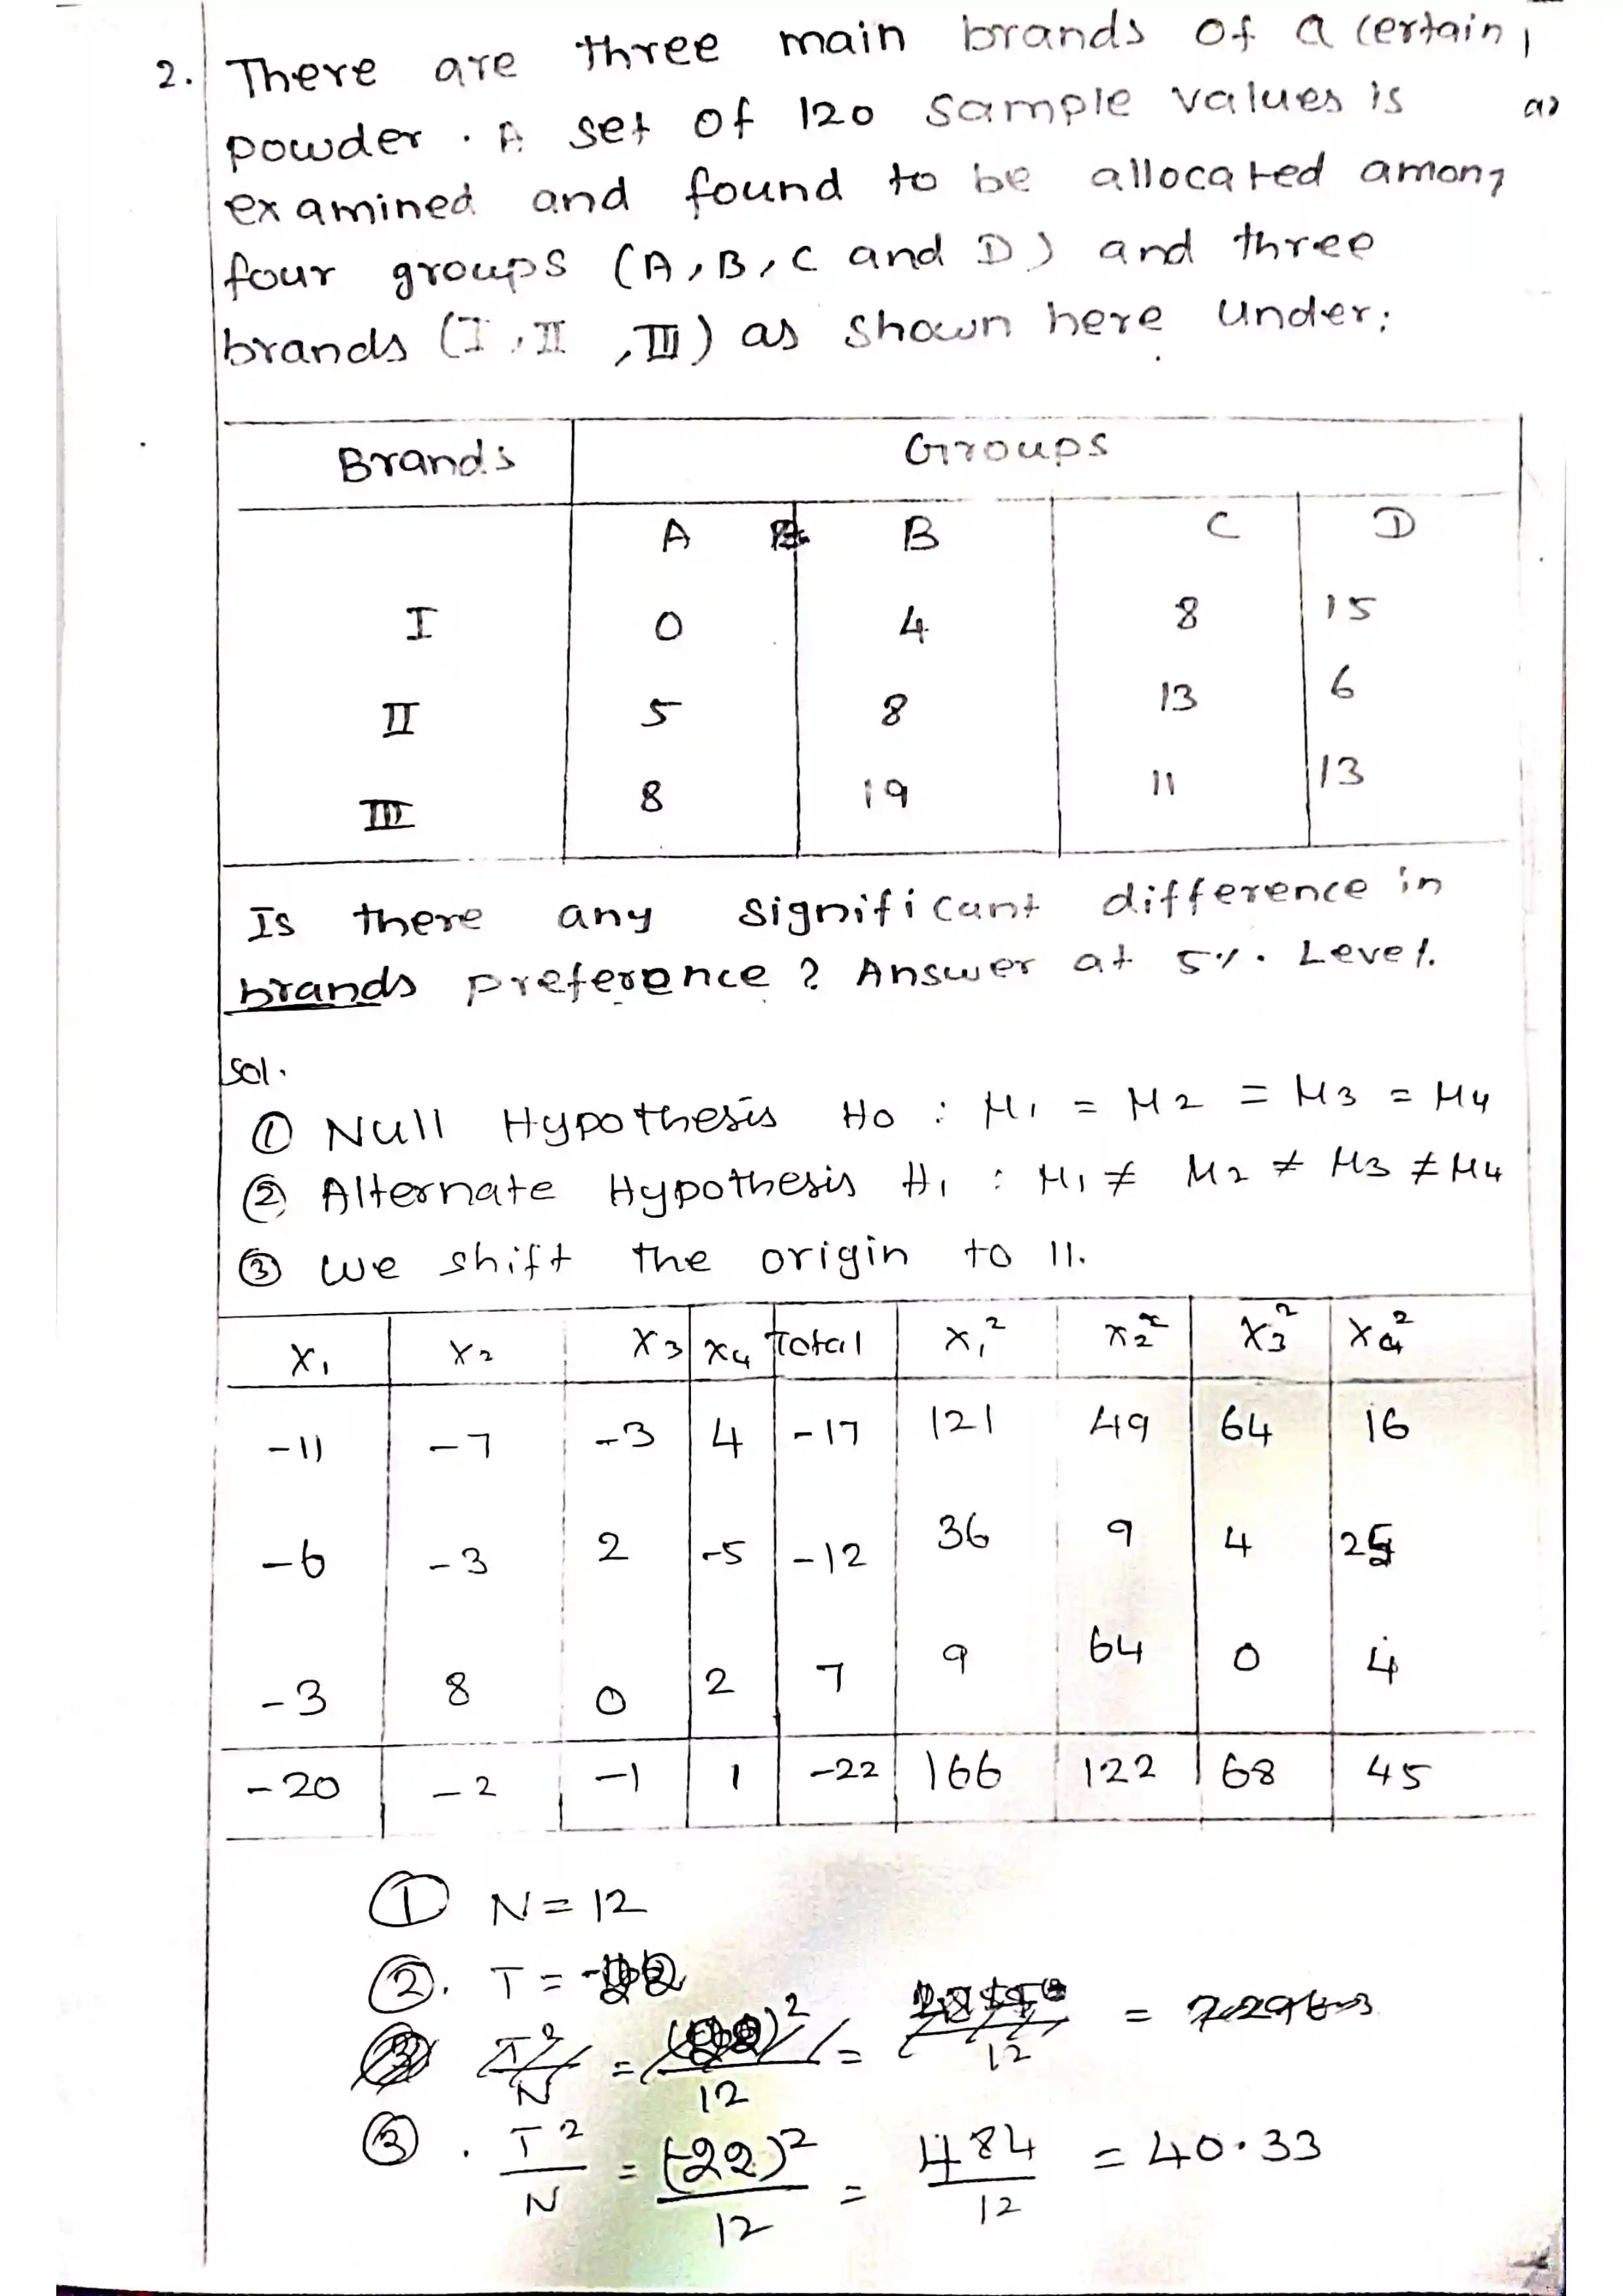 2. There are three main brands of a certain
powder. A set of 120 sample values is
examined and found to be allocated among
four groups (A, B, C and D) and three
brands (I, II, III) as shown here under:
Brands Groups
A B C D
I 0 4 8 15
II 5 8 13 6
III 8 19 11 13
Is there any significant difference in
brands preference? Answer at 5%. Level.
Sol.
① Null Hypothesis H0 : μ1 = μ2 = μ3 = μ4
② Alternate Hypothesis H1 : μ1 ≠ μ2 ≠ μ3 ≠ μ4
③ we shift the origin to 11.
X1 X2 X3 X4 Total X1² X2² X3² X4²
-11 -7 -3 4 -17 121 49 64 16
-6 -3 2 -5 -12 36 9 4 25
-3 8 0 2 7 9 64 0 4
-20 -2 -1 1 -22 166 122 68 45
① N = 12
②. T = -22
③. T²/N = (-22)²/12 = 484/12 = 40.33